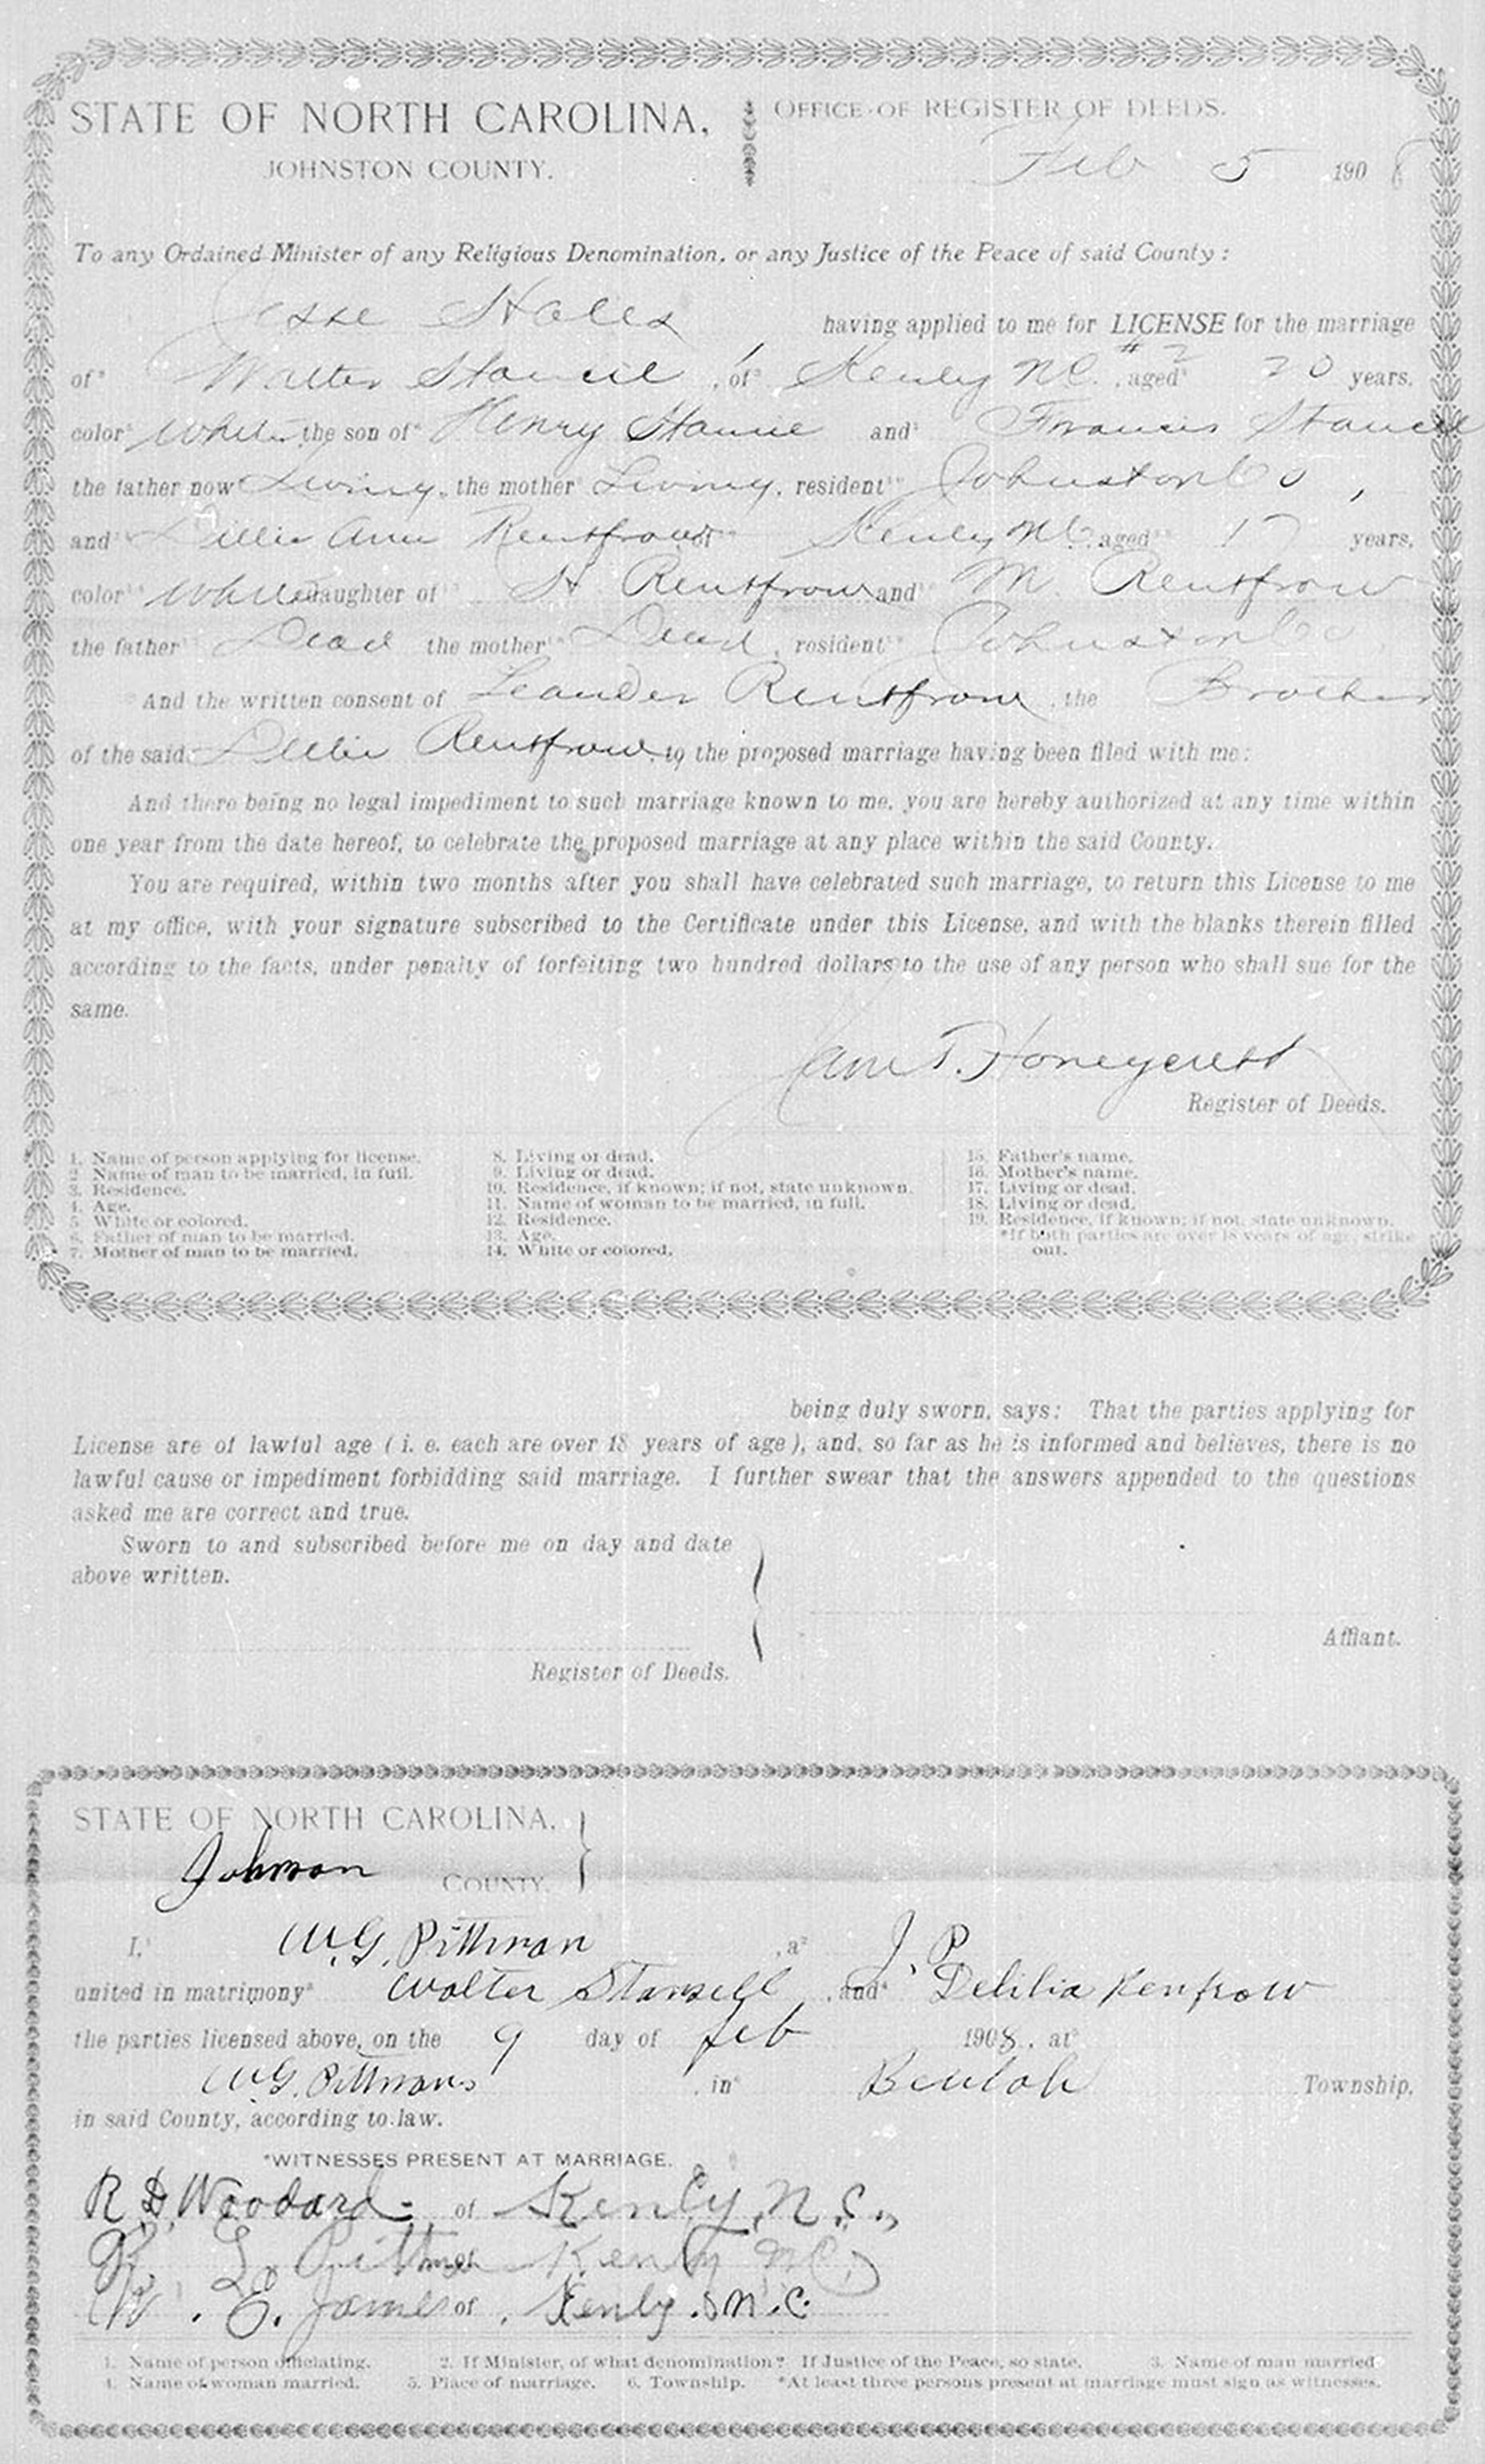 STATE OF NORTH CAROLINA,
JOHNSTON COUNTY.
OFFICE OF REGISTER OF DEEDS.
Feb 5 1908
To any Ordained Minister of any Religious Denomination, or any Justice of the Peace of said County:
Jesse Hales having applied to me for LICENSE for the marriage
of² Walter Stancil, of³ Kenly NC. #2, aged⁴ 20 years,
color⁵ White the son of⁶ Henry Stancil and⁷ Francis Stancil
the father now⁸ Living, the mother⁹ Living, resident¹⁰ Johnston Co,
and¹¹ Lillie Ann Rentfrow of¹² Kenly NC aged¹³ 17 years,
color¹⁴ White daughter of¹⁵ H Rentfrow and¹⁶ M. Rentfrow
the father¹⁷ Dead the mother¹⁸ Dead, resident¹⁹ Johnston Co
And the written consent of Leander Rentfrow, the Brother
of the said Rentfrow, to the proposed marriage having been filed with me:
And there being no legal impediment to such marriage known to me, you are hereby authorized at any time within
one year from the date hereof, to celebrate the proposed marriage at any place within the said County.
You are required, within two months after you shall have celebrated such marriage, to return this License to me
at my office, with your signature subscribed to the Certificate under this License, and with the blanks therein filled
according to the facts, under penalty of forfeiting two hundred dollars to the use of any person who shall sue for the
same.
Sam T. Honeycutt
Register of Deeds.
1. Name of person applying for license.
2. Name of man to be married, in full.
3. Residence.
4. Age.
5. White or colored.
6. Father of man to be married.
7. Mother of man to be married.
8. Living or dead.
9. Living or dead.
10. Residence, if known; if not, state unknown.
11. Name of woman to be married, in full.
12. Residence.
13. Age.
14. White or colored.
15. Father's name.
16. Mother's name.
17. Living or dead.
18. Living or dead.
19. Residence, if known; if not, state unknown.
*If both parties are over 18 years of age, strike
out.
being duly sworn, says: That the parties applying for
License are of lawful age (i. e. each are over 18 years of age), and, so far as he is informed and believes, there is no
lawful cause or impediment forbidding said marriage. I further swear that the answers appended to the questions
asked me are correct and true.
Sworn to and subscribed before me on day and date
above written.
Affiant.
Register of Deeds.
STATE OF NORTH CAROLINA,
Johnson COUNTY.
I,¹ W.G. Pittman, a² J. P.
united in matrimony³ Walter Stansell, and⁴ Delilia Renfrow
the parties licensed above, on the 9 day of feb 1908, at⁵
W.G. Pittmans, in⁶ Beulah Township,
in said County, according to law.
*WITNESSES PRESENT AT MARRIAGE.
R D Woodard of Kenly, N.C.,
R L Pittman Kenly NC,
W. E. James of Kenly. N.C.
1. Name of person officiating. 2. If Minister, of what denomination? If Justice of the Peace, so state. 3. Name of man married
4. Name of woman married. 5. Place of marriage. 6. Township. *At least three persons present at marriage must sign as witnesses.